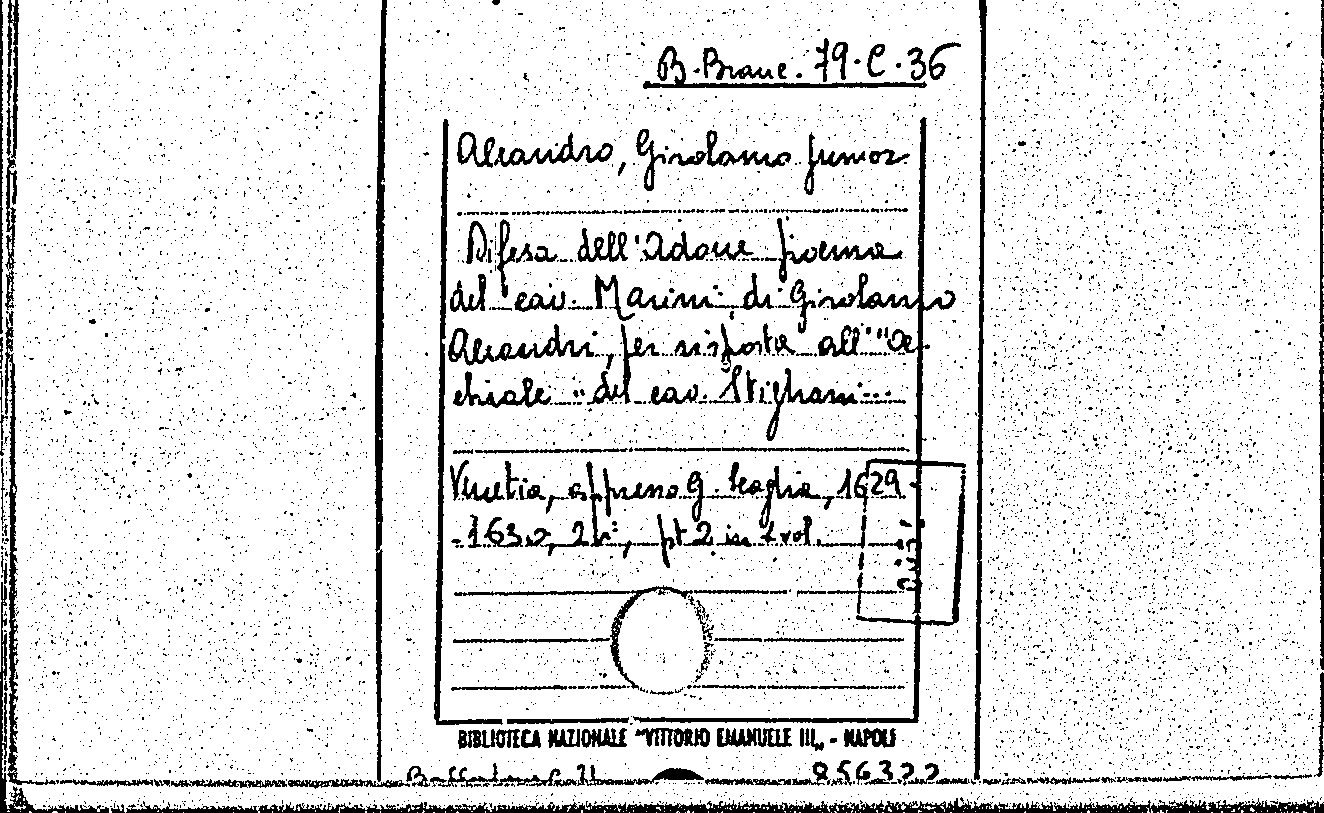 B. Branc. 79.C.36
Aleandro, Girolamo junior
Difesa dell'Adone poema
del cav. Marini di Girolamo
Aleandri, per risposta all'"Oc-
chiale" del cav. Stigliani...
Venetia, appresso G. Scaglia, 1629-
-1630, 24°, pt 2 in 1 vol.
BIBLIOTECA NAZIONALE "VITTORIO EMANUELE III„ - NAPOLI
856322